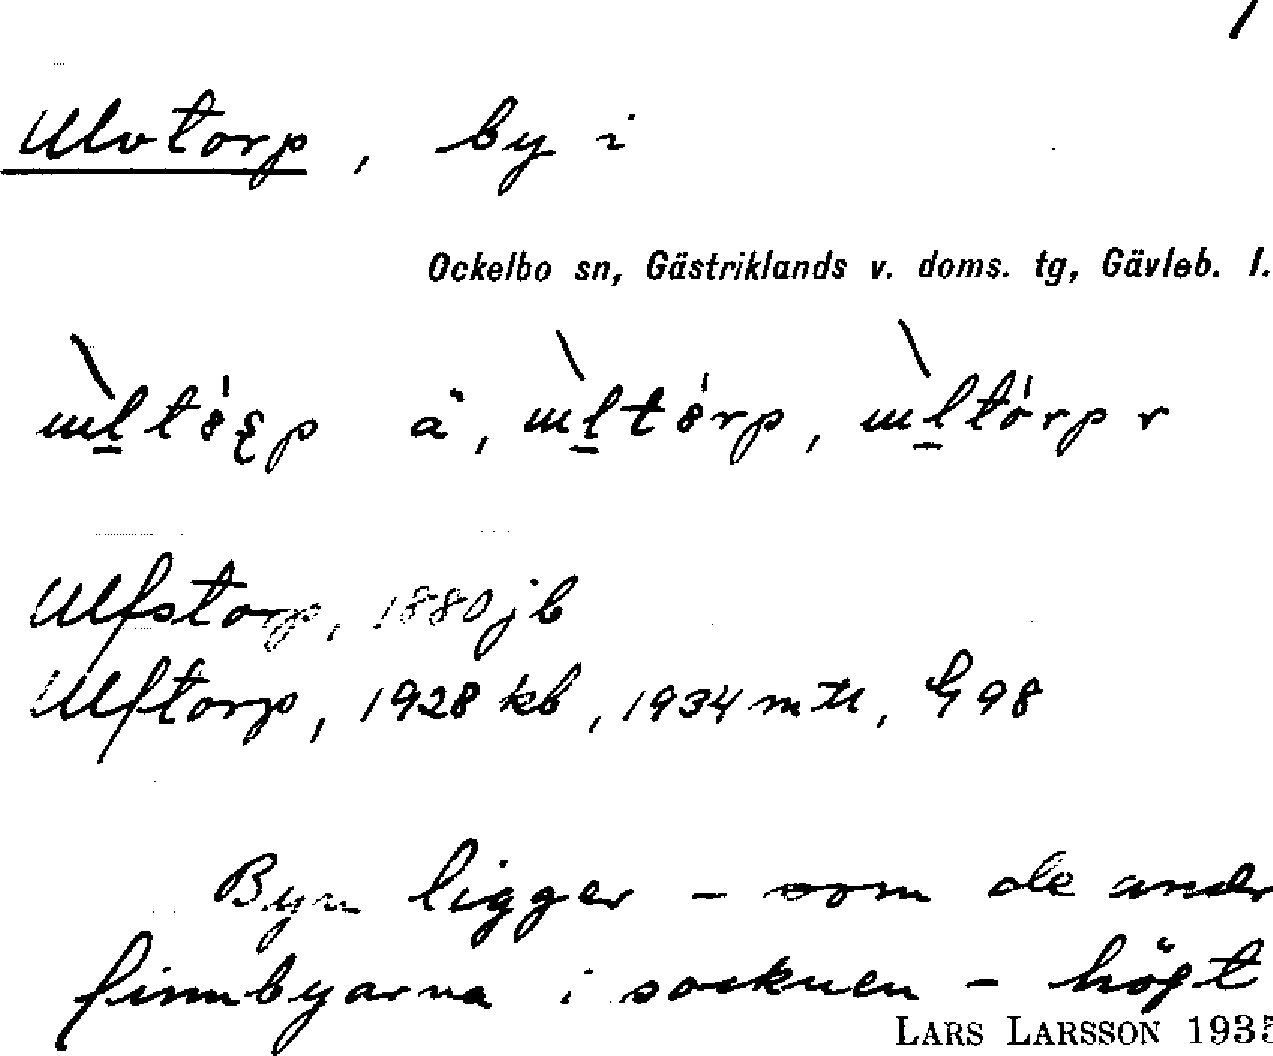 Ulvtorp, by i
Ockelbo sn, Gästriklands v. doms. tg, Gävleb. l.
ä, r
Ulfstorp, 1880 jb
Ulftorp, 1928 kb, 1934 mtl, G 98
Byn ligger – som de andr
finnbyarna i socknen – högt
LARS LARSSON 1935